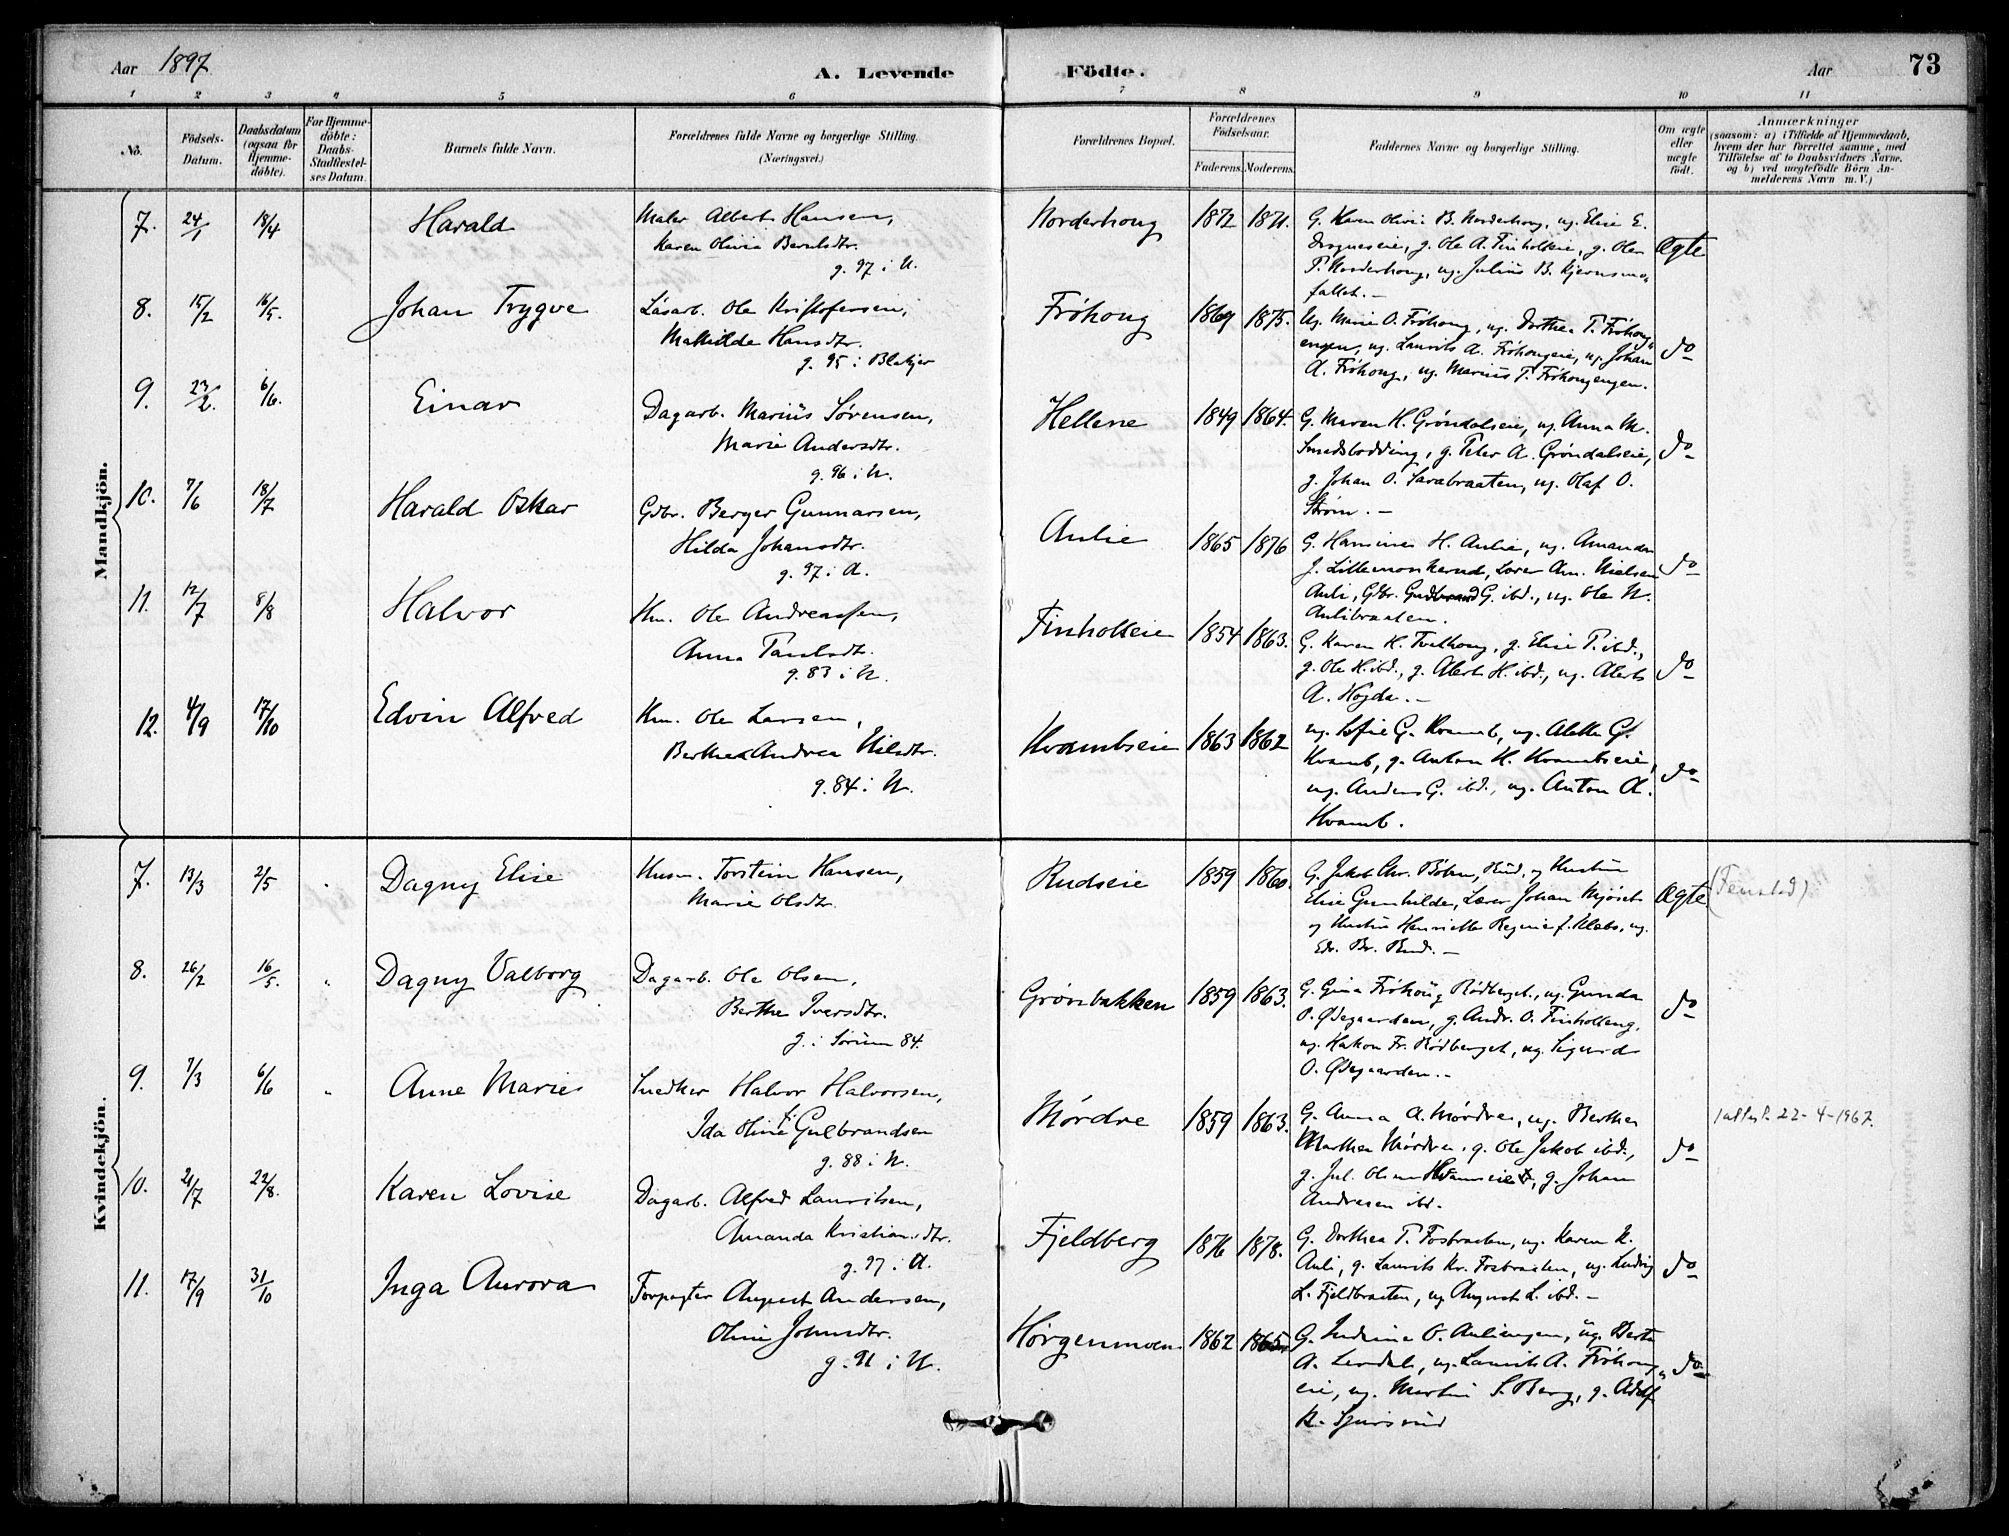 Aar 1897
A. Levende Födte.
Aar
73
1 2 3 4 5 6 7 8 9 10 11
No.
Födsels-Datum.
Daabsdatum (ogsaa for Hjemme-döbte).
For Hjemme-döbte: Daabs-Stadfæstel-ses Datum.
Barnets fulde Navn.
Forældrenes fulde Navne og borgerlige Stilling. (Næringsvei.)
Forældrenes Bopæl.
Forældrenes Födselsaar.
Faderens. Moderens.
Faddernes Navne og borgerlige Stilling.
Om ægte eller uægte födt.
Anmærkninger
(saasom: a) i Tilfælde af Hjemmedaab,
hvem der har forrettet samme, med
Tilföielse af to Daabsvidners Navne,
og b) ved uægtefödte Börn An-
melderens Navn m. V.)
Mandkjön.
7. 24/1 18/4 Harald
Maler Albert Hansen,
Karen Olivia Berntsdtr.
g. 97 i N.
Norderhoug 1872 1871.
G. Karen Olivie B. Norderhoug, ug. Elise E.
g. Ole A. Finholteie, g. Ole
T. Norderhoug, ug. Julius B. Kjernsmo-
fallet.-
Ægte
8. 15/2 16/5. Johan Trygve
Løsarb. Ole Kristofersen,
Mathilde Hansdtr.
g. 95 i Blakjer
Frøhoug 1869 1875.
Ug. Marie O. Frøhoug, ug. Dorthea T. Frøhoug-
engen, ug. Laurits A. Frøhougeie, ug. Johan
A. Frøhoug, ug. Marius T. Frøhougengen.
do
9. 23/2. 6/6. Einar
Dagarb. Marius Sørensen,
Marie Andersdtr.
g. 96 i N.
Hellene 1849 1864.
G. Maren H. Grøndalseie, ug. Anna M.
Smedsbodding, g. Peter A. Grøndalseie,
g. Johan O. Sarabraaten, ug. Olaf O.
Strøm.-
do
10. 7/6 18/7 Harald Oskar
Gdbr. Berger Gunnarsen,
Hilda Johansdtr.
g. 97 i A.
Aulie 1865 1876
G. Hansine H. Aulie, ug. Amanda
J. Lillemonkerud, Lærer Am. Nielsen
Auli, Gdbr. Gudbrand G. ibd., ug. Ole N.
Aulibraaten.
do
11. 12/7 8/8 Halvor
Hm. Ole Andreassen,
Anna Paulsdtr.
g. 83 i N.
Finholteie 1854 1863.
G. Karen H. Tvethoug, g. Elise P. ibd.,
g. Ole H. ibd., g. Albert H. ibd., ug. Alerts
A. Høgda.-
do
12. 4/9 17/10 Edvin Alfred
Hm. Ole Larsen,
Berthea Andrea Nilsdtr.
g. 84 i N.
Hvambseie 1863 1862
ug. Sofie G. Hvamb, ug. Alette G.
Hvamb, g. Anton H. Hvambseie,
ug. Anders G. ibd., ug. Anton A.
Hvamb.
do
Kvindekjön.
7. 13/3 2/5 Dagny Elise
Husm. Torstein Hansen,
Marie Olsdtr.
Rudseie 1859 1860.
G. Jakob Chr. Bøhn, Rud, og Hustru
Elise Gunhilda, Lærer Johan Mjøset
og Hustru Henriette Regine f. Klebo, ug.
Edv. Br. Rud.-
Ægte (Fenstad)
8. 26/2 16/5. Dagny Valborg
Dagarb. Ole Olsen,
Berthe Iversdtr.
g. i Sørum 84.
Grønbakken 1859 1863.
G. Gina Frøhoug Rødberget, ug. Gunda
O. Ødegaarden, g. Andr. O. Finholteng,
ug. Hakon Fr. Rødberget, ug. Sigurd
O. Ødegaarden.-
do
9. 7/3 6/6 Anne Marie
Snedker Halvor Halvorsen,
Ida Oline f. Gulbrandsen
g. 88 i N.
Mørdre 1859 1863.
G. Anna A. Mørdre, ug. Berthe
Marthea Mørdre, g. Ole Jakob ibd.,
g. Jul. Olsen g. Johan
Andresen ibd.
do
1 attest 22-4-1967.
10. 21/7 22/8. Karen Lovise
Dagarb. Alfred Lauritsen,
Amanda Kristiansdtr.
g. 97 i A.
Fjeldberg 1876 1878.
G. Dorthea T. Fosbraaten, ug. Karen K.
Auli, g. Laurits Kr. Fosbraaten, ug. Ludvig
L. Fjeldbraaten, ug. August L. ibd.-
do
11. 17/9 31/10 Inga Aurora
Forpagter August Andersen,
Oline Johnsdtr.
g. 91 i N.
Hørgenmoen 1862 1865.
G. Indiana O. Auliengen, ug. Berta
A. ug. Laurits A. Frøhoug-
eie, ug. Martin S. Berg, g. Adolf
K.
do